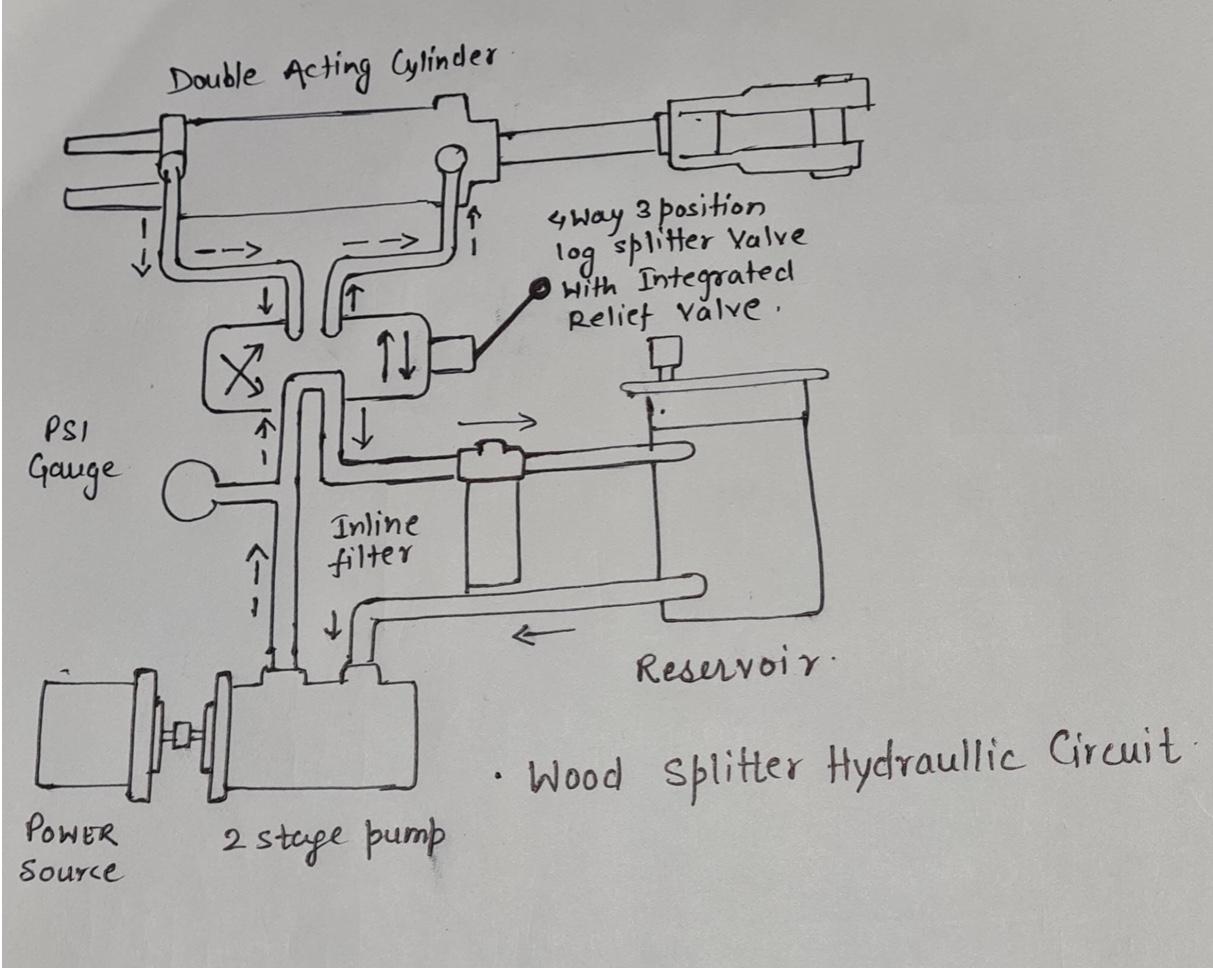 Double Acting Cylinder
4 way 3 position
log splitter Valve
with Integrated
Relief Valve.
PSI
Gauge
Inline
filter
Reservoir.
· Wood Splitter Hydraullic Circuit
POWER
Source
2 stage pump